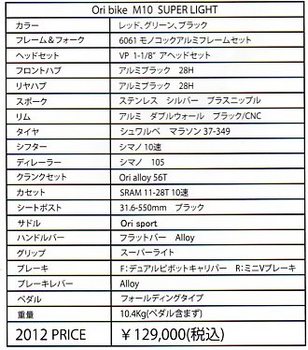 Ori bike M10 SUPER LIGHT
カラー レッド、グリーン、ブラック
フレーム＆フォーク 6061 モノコックアルミフレームセット
ヘッドセット VP 1-1/8” アヘッドセット
フロントハブ アルミブラック 28H
リヤハブ アルミブラック 28H
スポーク ステンレス シルバー ブラスニップル
リム アルミ ダブルウォール ブラック/CNC
タイヤ シュワルベ マラソン 37-349
シフター シマノ 10速
ディレーラー シマノ 105
クランクセット Ori alloy 56T
カセット SRAM 11-28T 10速
シートポスト 31.6-550mm ブラック
サドル Ori sport
ハンドルバー フラットバー Alloy
グリップ スーパーライト
ブレーキ F：デュアルピボットキャリパー R：ミニVブレーキ
ブレーキレバー Alloy
ペダル フォールディングタイプ
重量 10.4Kg(ペダル含まず)
2012 PRICE ￥129,000(税込)